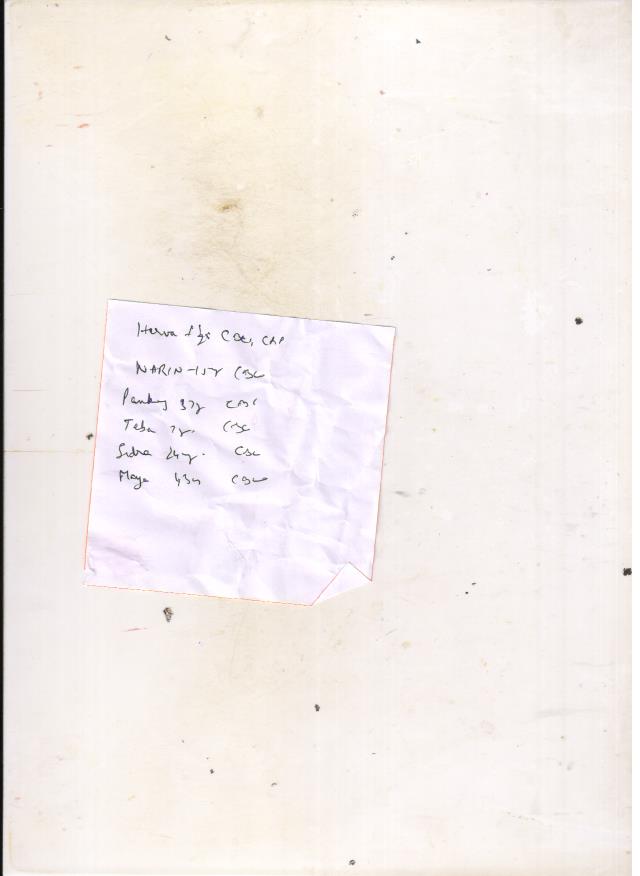 Herva CBC, CRP
NARIN -15y CBC
Pankaj 37y CBC
Teba 7y. CBC
Sidra 24y. CBC
Maya 43y CBC